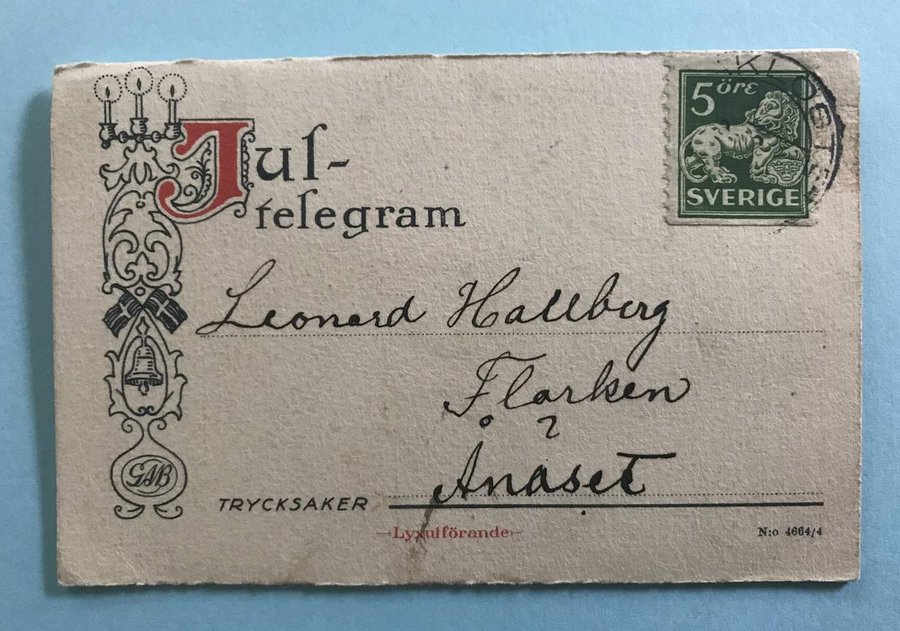 Jul-
telegram
5 ÖRE
SVERIGE
Leonard Hallberg
Flarken
Ånäset
GAB
TRYCKSAKER
Lyxutförande
N:o 4664/4